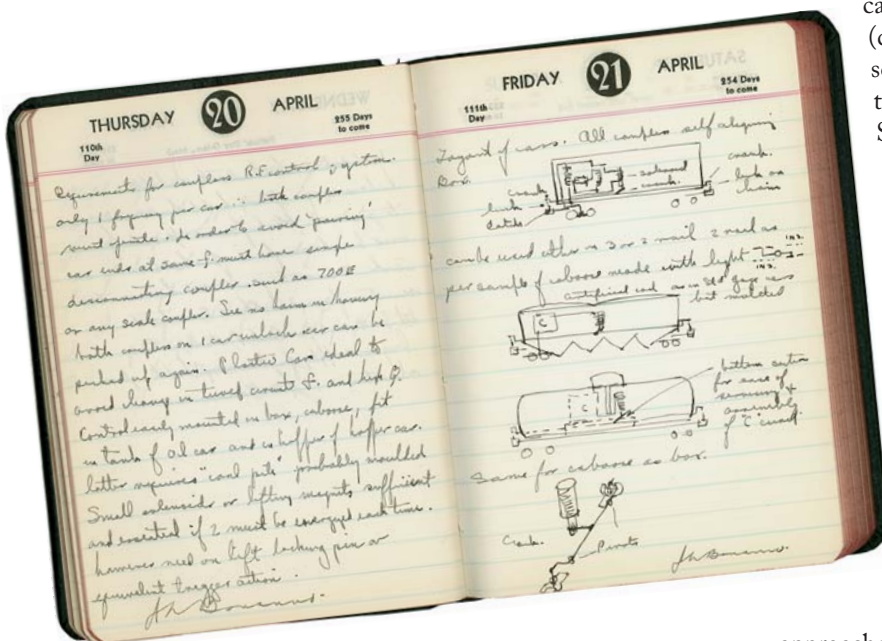 THURSDAY 20 APRIL
110th Day
255 Days to come
Requirements for couplers R.F. control system.
only 1 frequency per car ∴ both couplers
must operate. In order to avoid "pairing"
car ends at same f. must have simple
disconnecting coupler such as 700E
or any scale coupler. See no harm in having
both couplers on 1 car unlock as car can be
picked up again. Plastic Cars ideal to
avoid change in tuned circuits f. and high Q.
Control easily mounted in box, caboose, fit
in tank of oil car and in hopper of hopper car.
latter requires "coal pile" probably moulded
Small solenoids or lifting magnets sufficient
and essential if 2 must be energized each time.
hammer need only lift locking pin or
equivalent trigger action.
FRIDAY 21 APRIL
111th Day
254 Days to come
Layout of cars. All couplers self aligning
Box.
crank
link
latch
solenoid
crank
crank.
link or
chain
can be used either on 3 or 2 rail 2 rail as
per sample of caboose made with light
INS.
INS.
artificial coal as in std gage cars
but molded
C
bottom section
for ease of
servicing &
assembly
of "C" circuit.
C
Same for caboose as box.
Crank.
Pivots
ca
(c
se
t
S